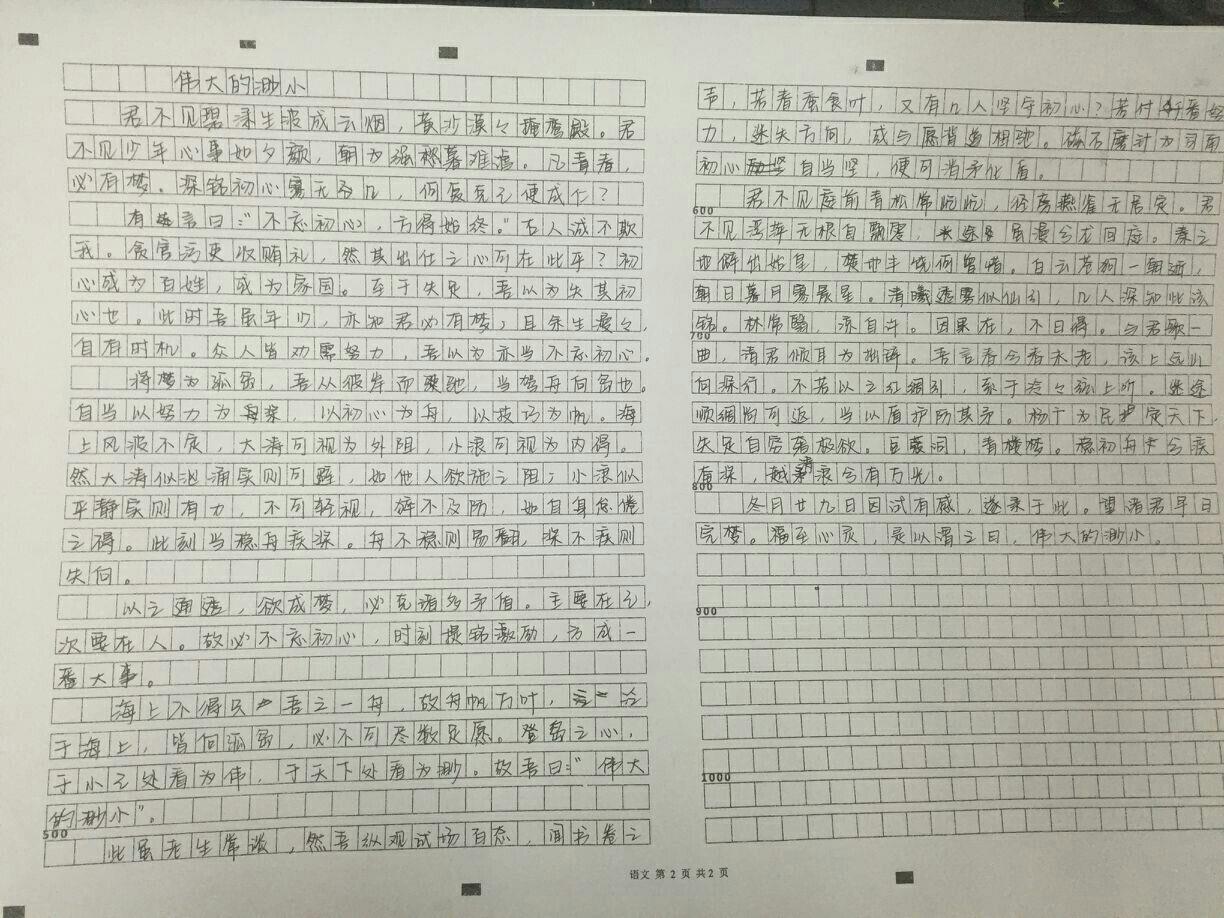 伟大的渺小
君不见碧绿生波成云烟，黄沙漠漠掩鸾殿。君
不见少年心事如夕颜，朝为强 暮难虚。凡青春，
必有梦。深铭初心 无吝几，何妨克己便成仁？
有言曰：“不忘初心，方得始终。”古人诚不欺
我。贪官污吏收贿礼，然其出仕之心可在此乎？初
心成为百姓，成为家国。至于失足，吾以为失其初
心也。此时吾虽年少，亦知君必有梦；且余生漫々，
自有时机。众人皆劝需努力，吾以为亦当不忘初心。
将梦为孤岛，吾从彼岸而 驰，当驾舟向岛也。
自当以努力为桨，以初心为舟，以技巧为帆。海
上风波不定，大涛可视为外阻，小浪可视为内碍。
然大涛似汹涌实则可辟，如他人欲施之阻；小浪似
平静实则有力，不可轻视，猝不及防，如自身怠倦
之碍。此刻当稳舟疾桨。舟不稳则易翻，桨不疾则
失向。
以之通透，欲成梦，必克诸多矛盾。主要在己，
次要在人。故必不忘初心，时刻提铭激励，方成一
番大事。
海上不得只吾之一舟，故舟帆万叶，
于海上，皆向孤岛，必不可尽数足愿。登岛之心，
于小己处看为伟，于天下处看为渺。故吾曰：“伟大
的渺小”。
500
此虽老生常谈，然吾纵观试场百态，闻书卷之
声，若春蚕食叶，又有几人坚守初心？若付 番给
力，迷失方向，成与愿背道相驰。磁石磨针为司南
初心 自当坚，便可消矛化盾。
600
君不见庭前青松常屹屹，径旁燕雀无居定。君
不见浮萍无根自飘零， 虽漫兮龙回庭。秦之
地僻出始皇，楚地丰饶何曾惜。白云苍狗一朝逝，
朝日暮月雾晨星。清曦透雾似仙引，几人深知此该
铭。林常翳，流自许。因果在，不日得。与君歌一
700
曲，请君倾耳为拙辞。吾言看兮看未老，该上远山
向深行。不若以之红绸引，系于泠々弦上听。迷途
顺绸皆可返，当以盾护防其矛。杨广为民 定天下，
失足自穷奢极欲。巨 洞，青楼梦。稳初舟兮疾
有深，越 浪兮有万光。
800
冬月廿九日因试有感，遂录于此。望诸君早日
完梦。福至心灵，是以谓之曰，伟大的渺小。
900
1000
语文 第 2 页 共 2 页